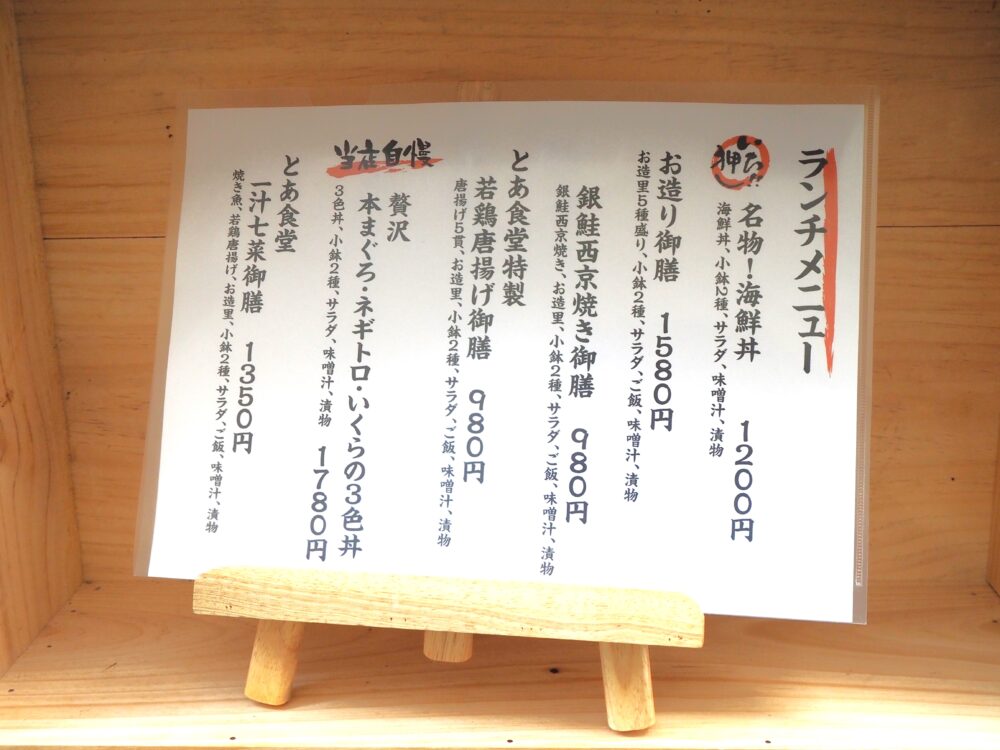 ランチメニュー
いち押し!!
名物！海鮮丼 1200円
海鮮丼、小鉢2種、サラダ、味噌汁、漬物
お造り御膳 1580円
お造里5種盛り、小鉢2種、サラダ、ご飯、味噌汁、漬物
銀鮭西京焼き御膳 980円
銀鮭西京焼き、お造里、小鉢2種、サラダ、ご飯、味噌汁、漬物
とあ食堂特製
若鶏唐揚げ御膳 980円
唐揚げ5貫、お造里、小鉢2種、サラダ、ご飯、味噌汁、漬物
当店自慢
贅沢
本まぐろ・ネギトロ・いくらの3色丼
3色丼、小鉢2種、サラダ、味噌汁、漬物 1780円
とあ食堂
一汁七菜御膳 1350円
焼き魚、若鶏唐揚げ、お造里、小鉢2種、サラダ、ご飯、味噌汁、漬物